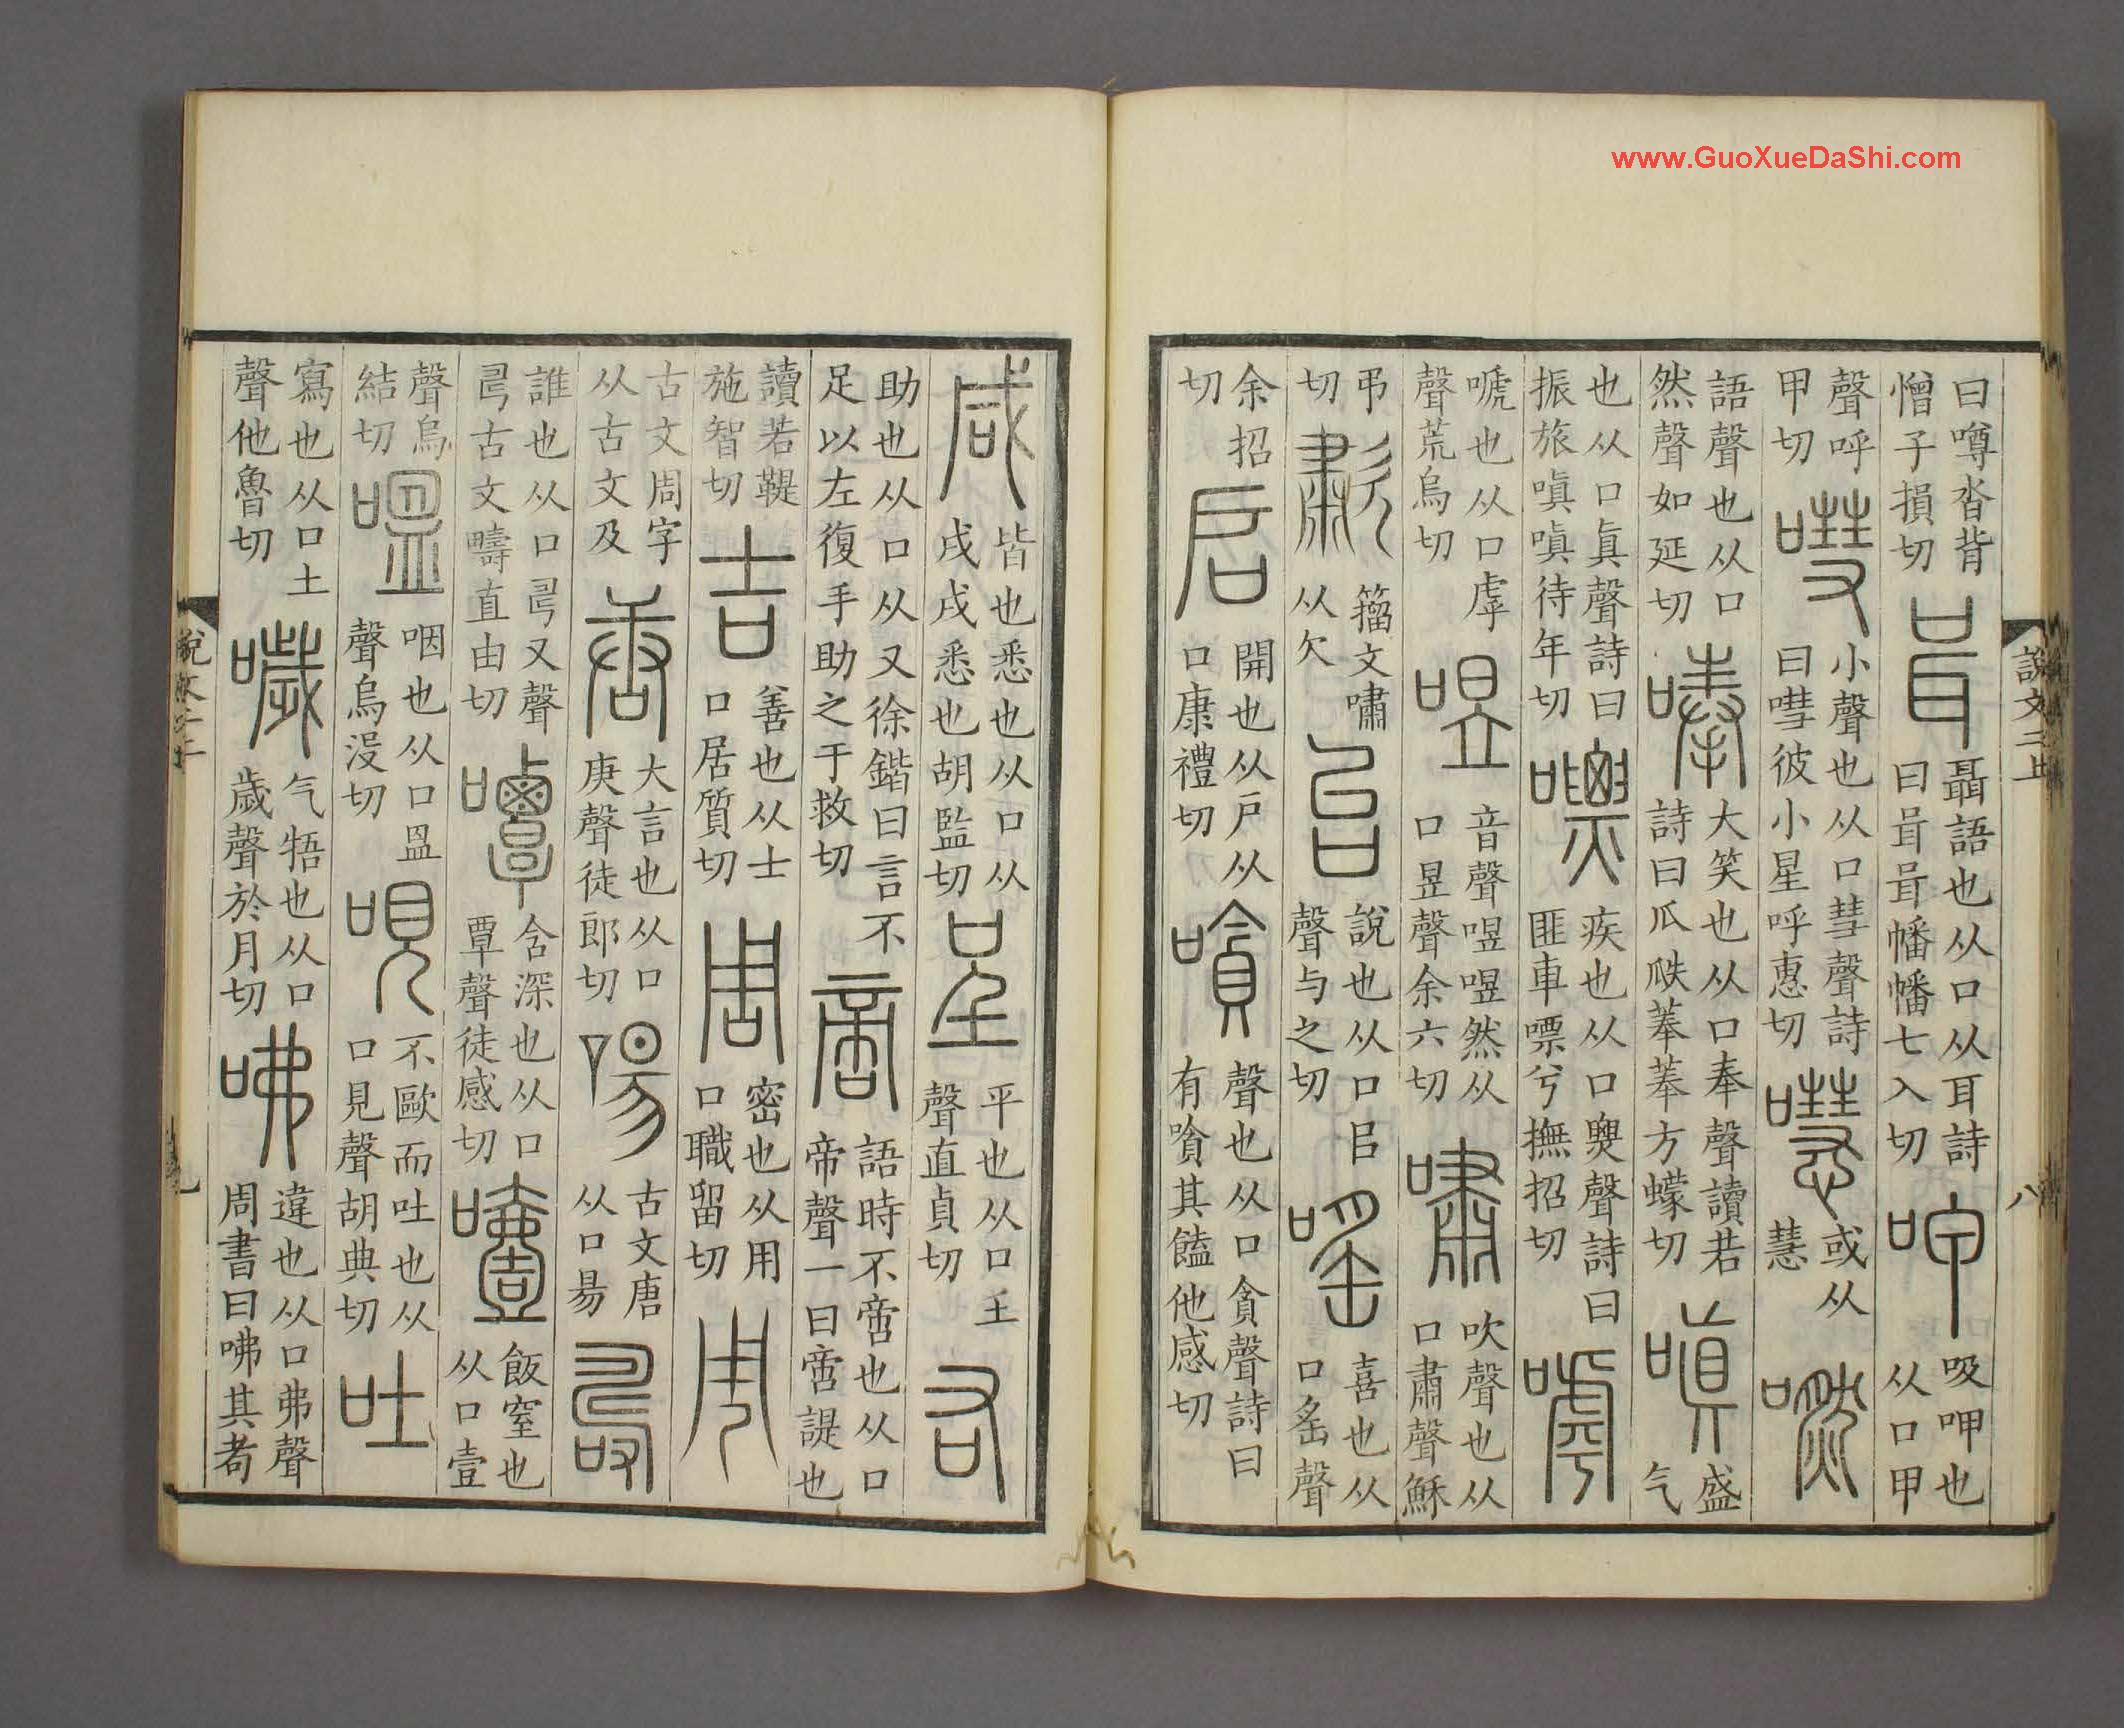 www.GuoXueDaShi.com
說文二上
八
曰噂沓背憎子損切咠聶語也从口从耳詩曰咠咠幡幡七入切呷吸呷也从口甲
聲呼甲切嘒小聲也从口彗聲詩曰嘒彼小星呼惠切嚖或从慧嘫
語聲也从口然聲如延切唪大笑也从口奉聲讀若詩曰瓜瓞菶菶方蠓切嗔盛气
也从口眞聲詩曰振旅嗔嗔待年切嘌疾也从口㶾聲詩曰匪車嘌兮撫招切嘑
嗁也从口虖聲荒烏切喅音聲喅喅然从口昱聲余六切嘯吹聲也从口肅聲穌
弔切歗籒文嘯从欠台說也从口㠯聲与之切㗛喜也从口䍃聲
余招切启開也从戶从口康禮切嗿聲也从口貪聲詩曰有嗿其饁他感切
咸皆也悉也从口从戌戌悉也胡監切呈平也从口𡈼聲直貞切右
助也从口从又徐鍇曰言不足以左復手助之于救切啻語時不啻也从口帝聲一曰啻諟也
讀若鞮施智切吉善也从士口居質切周密也从用口職留切
古文周字从古文及唐大言也从口庚聲徒郎切啺古文唐从口昜𠷎
誰也从口𢏚又聲𢏚古文疇直由切嘾含深也从口覃聲徒感切噎飯窒也从口壹
聲烏結切嗢咽也从口𥁕聲烏沒切哯不歐而吐也从口見聲胡典切吐
寫也从口土聲他魯切噦气牾也从口歲聲於月切咈違也从口弗聲周書曰咈其耇
說文二上